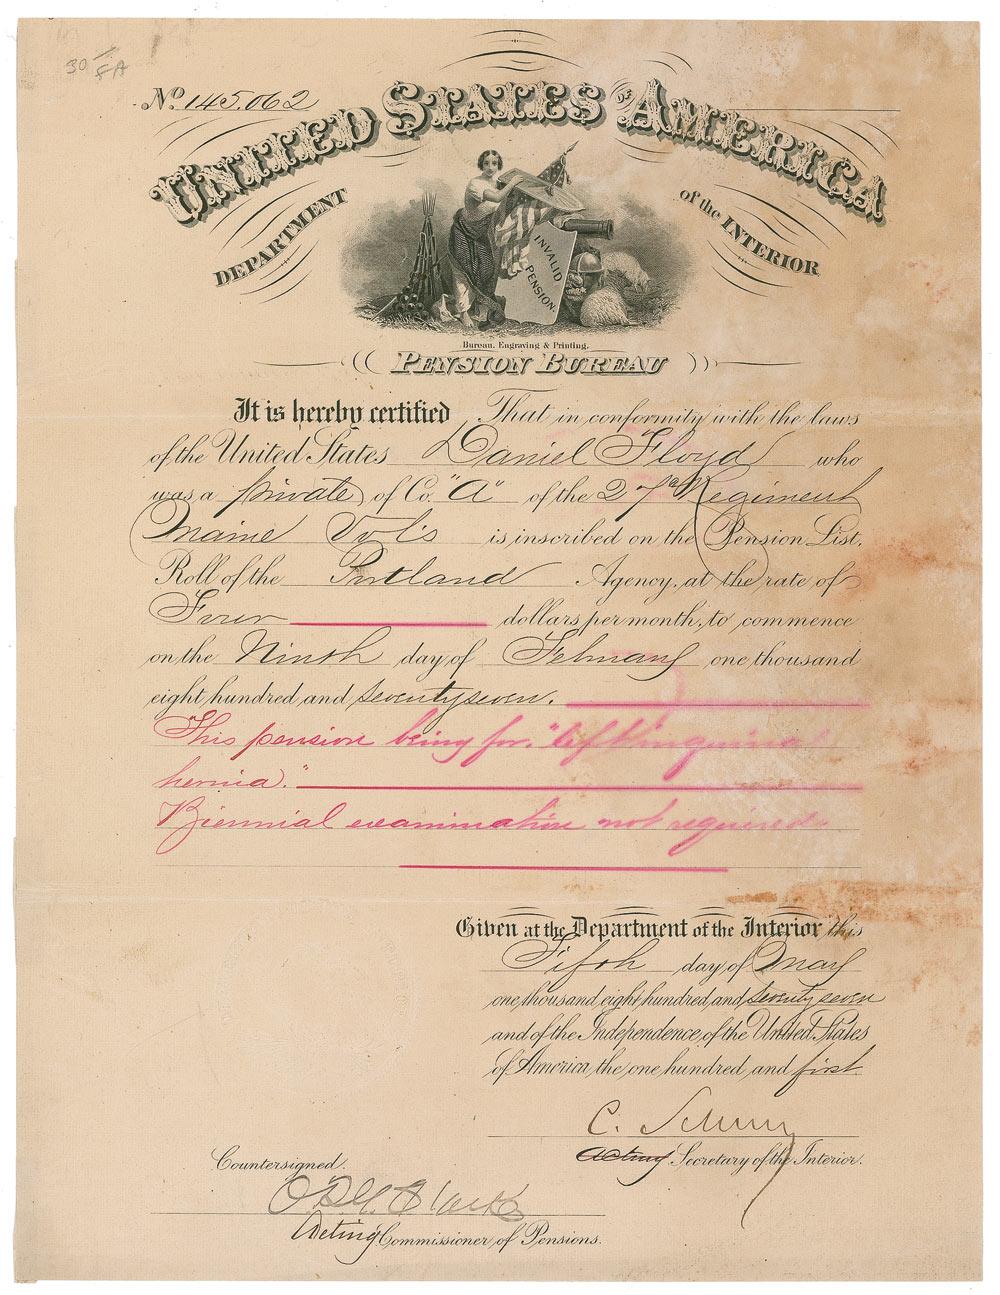 30/FA
No. 145.062
UNITED STATES OF AMERICA
DEPARTMENT of the INTERIOR
INVALID PENSION
Bureau. Engraving & Printing.
PENSION BUREAU
It is hereby certified That in conformity with the laws
of the United States Daniel Floyd who
was a private of Co. "A" of the 27th Regiment
Maine Vols is inscribed on the Pension List,
Roll of the Portland Agency, at the rate of
Four dollars per month, to commence
on the Ninth day of February one thousand
eight hundred and seventy seven.
This pension being for. "left inguinal
hernia."
Biennial examination not required.
Given at the Department of the Interior this
Fifth day of May
one thousand eight hundred and seventy seven
and of the Independence of the United States
of America the one hundred and first.
C. Schurz
Acting Secretary of the Interior.
Countersigned.
O.P.G. Clarke
Acting Commissioner of Pensions.